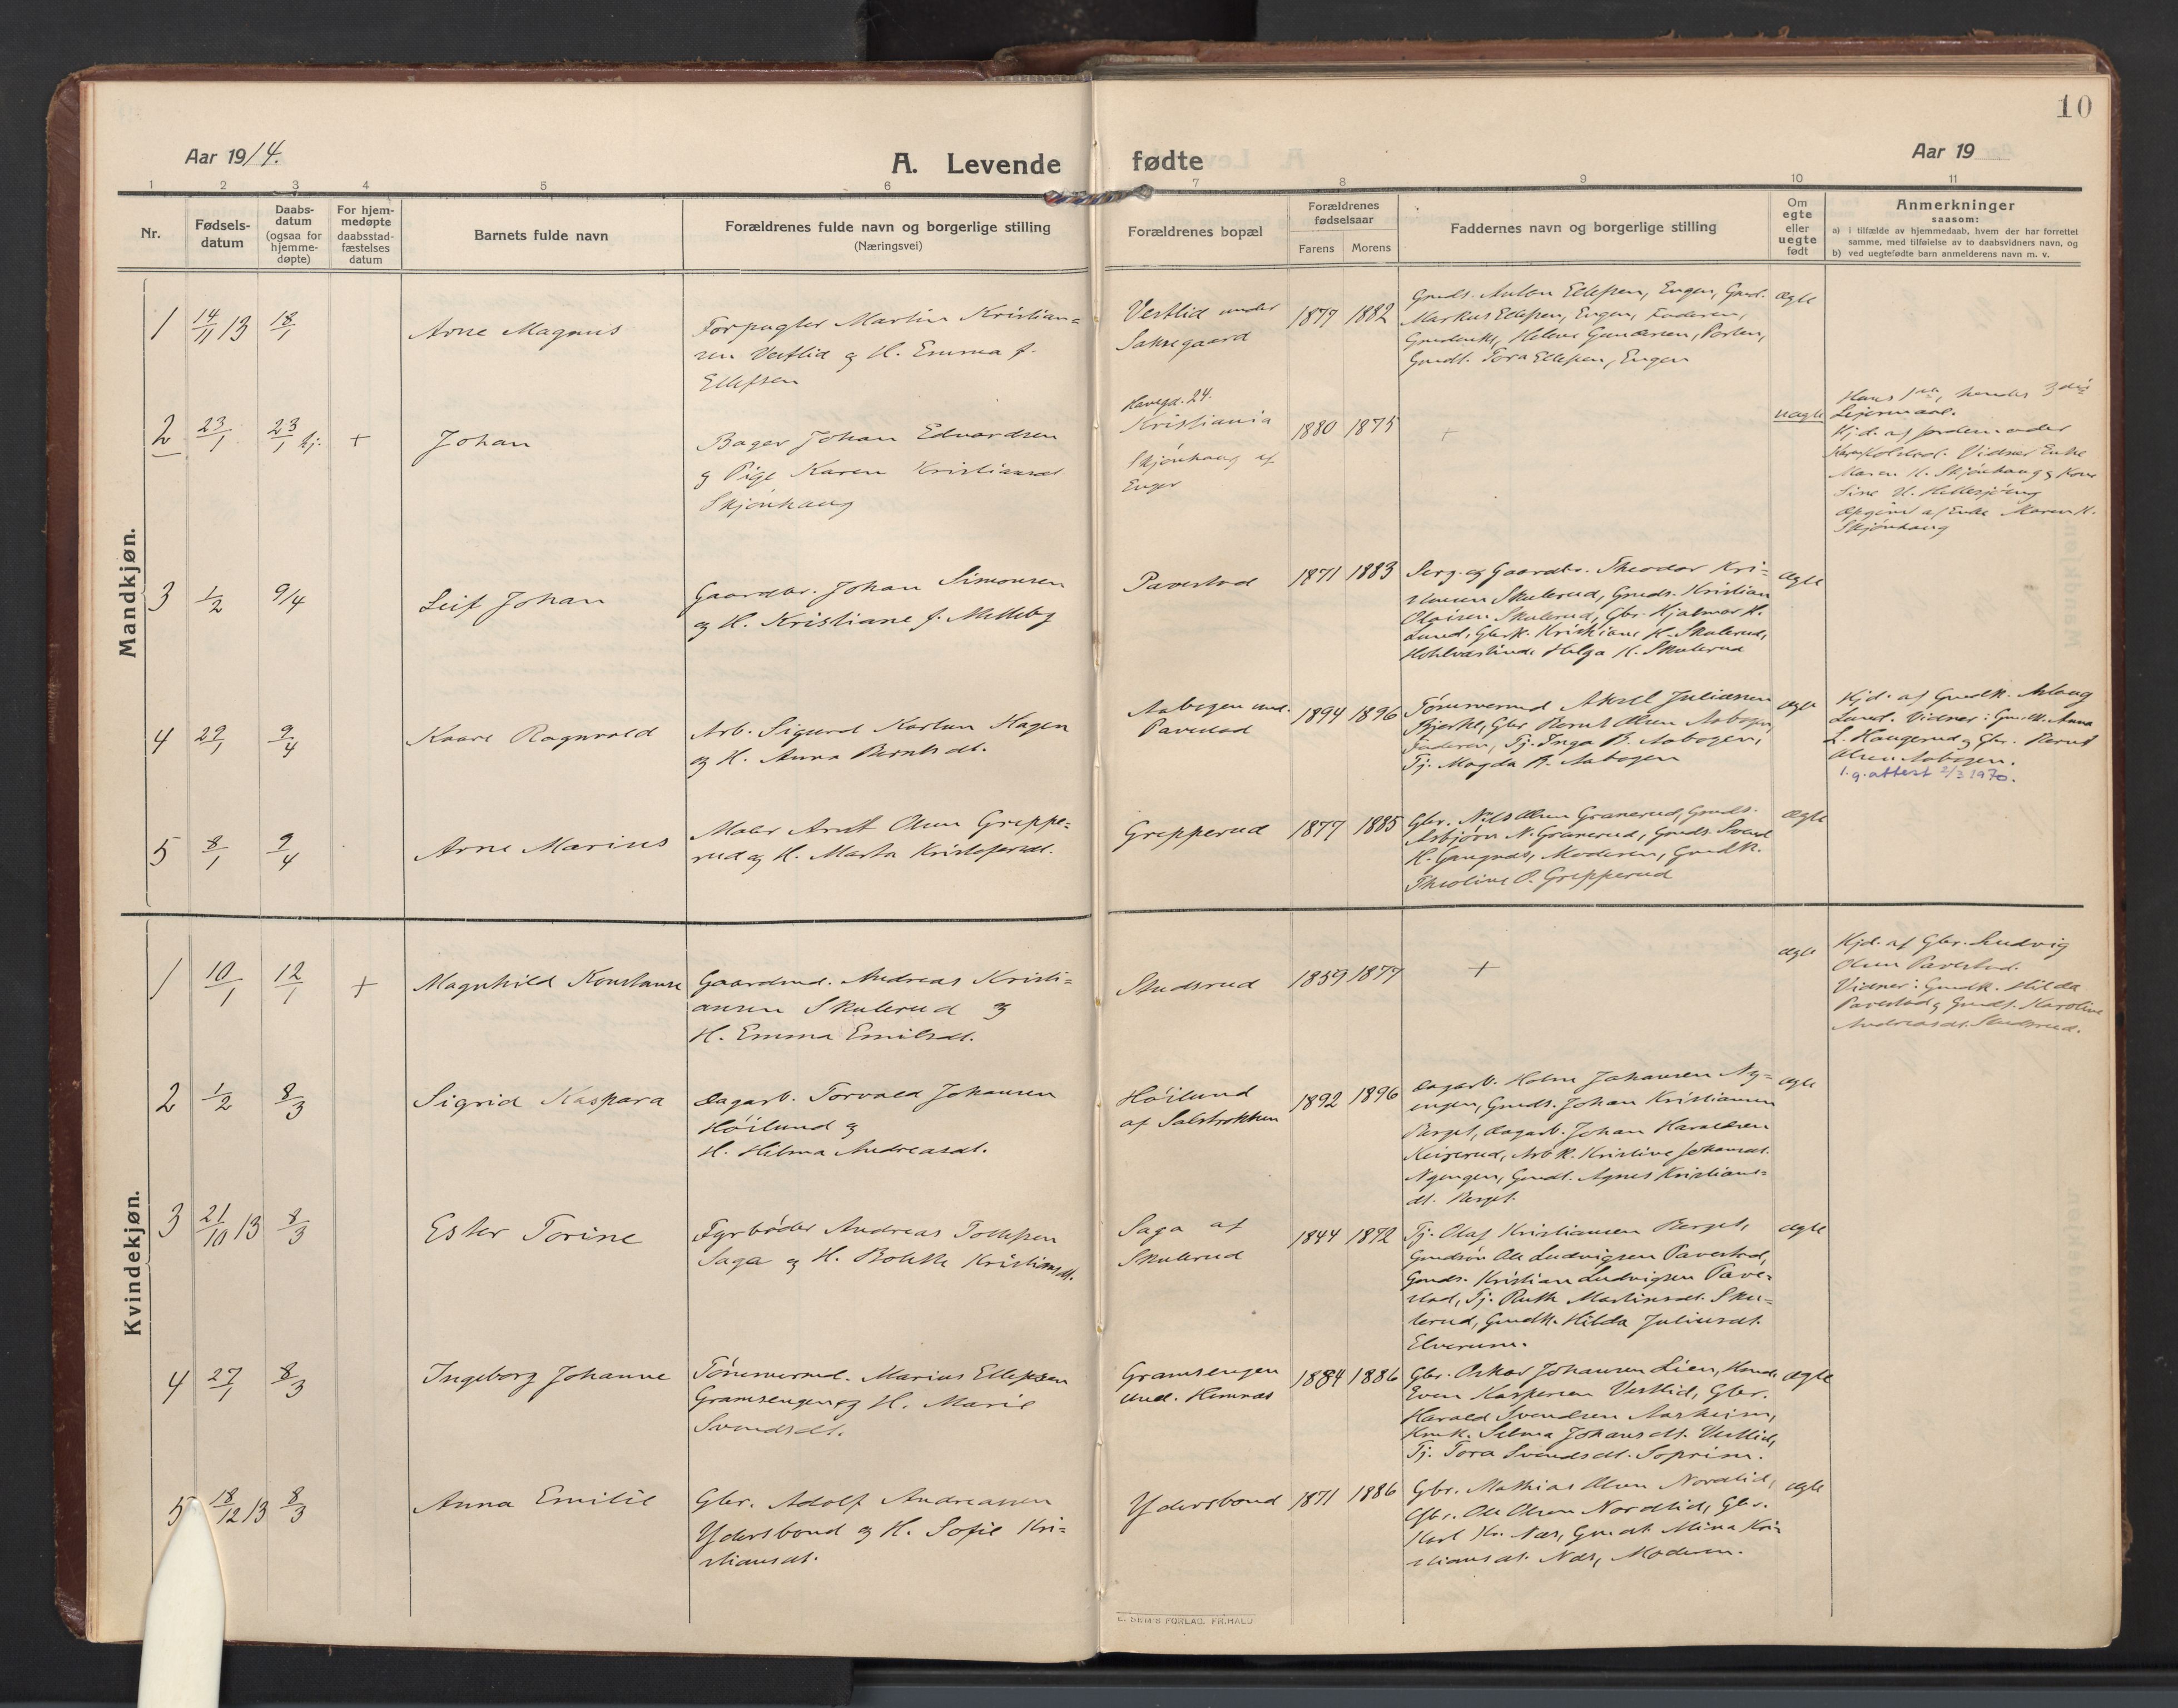 10
Aar 1914.
A. Levende fødte
Aar 19
1 2 3 4 5 6 7 8 9 10 11
Nr.
Fødsels-
datum
Daabs-
datum
(ogsaa for
hjemme-
døpte)
For hjem-
medøpte
daabsstad-
fæstelses
datum
Barnets fulde navn
Forældrenes fulde navn og borgerlige stilling
(Næringsvei)
Forældrenes bopæl
Forældrenes
fødselsaar
Farens Morens
Faddernes navn og borgerlige stilling
Om
egte
eller
uegte
født
Anmerkninger
saasom:
a) i tilfælde av hjemmedaab, hvem der har forrettet
samme, med tilføielse av to daabsvidners navn, og
b) ved uegtefødte barn anmelderens navn m. v.
Mandkjøn.
1 14/11 13 18/1 Arne Magnus
Forpagter Martin Kristian=
sen Vestlid og H. Emma f.
Ellefsen
Vestlid under
Saksegaard
1879 1882
Gmds. Anton Ellefsen, Engen, Gmds.
Markus Ellefsen, Engen, Faderen,
Helene Gundersen, Porten,
Gmdt. Tora Ellefsen, Engen
ægte
2 23/1 23/1 hj. + Johan
Bager Johan Edvardsen
og Pige Karen Kristiansdt
Skjønhaug
Havegd. 24.
Kristiania
Skjønhaug af
Enger
1880 1875
+
uægte
Hans 1ste, hendes 3die
Leiermaal.
Hjd. af Jordemoder
Vidner Enke
Maren H. Skjønhaug og Kone
Sine H. Hellesjøeng
Opgivet af Enke Maren H.
Skjønhaug
3 1/2 9/4 Leif Johan
Gaardbr. Johan Simonsen
og H. Kristiane f. Melleby
Pavestad
1871 1883
Serg. og Gaardbr. Theodor Kri=
stiansen Skulerud, Gmds. Kristian
Olaisen Skulerud, Gbr. Hjalmar H.
Lund, Gbrk. Kristiane H. Skulerud,
Helga H. Skulerud
ægte
4 29/1 9/4 Kaare Ragnvald
Arb. Sigurd Karlsen Hagen
og H. Anna Berntsdt.
Aabogen und.
Pavestad
1894 1896
Tømmermd Aksel Juliussen
Bjerke, Gbr Bernt Olsen Aabogen,
Faderen, Tj. Inga B. Aabogen,
Tj. Magda B. Aabogen
ægte
Hjd. af Gmdk. Aslaug
Lund. Vidner: Gmdk. Anna
L. Haugerud og Gbr. Bernt
Olsen Aabogen.
1.g.attest 2/3 1970.
5 8/1 9/4 Arne Marius
Maler Arnt Olsen Greppe=
rud og H. Marta Kristofersdt.
Grepperud
1877 1885
Gbr. Nils Olsen Granerud, Gmds.
Asbjørn N. Granerud, Gmds. Svend
H. Gangnæs, Moderen, Gmdk.
Theoline O. Grepperud
ægte
Kvindekjøn.
1 10/1 12/1 + Magnhild Konstanse
Gaardmd. Andreas Kristi=
ansen Skulerud og
H. Emma Emilsdt.
Studsrud
1859 1877
+
ægte
Hjd. af Gbr. Ludvig
Olsen Pavestad.
Vidner: Gmdk. Hilda
Pavestad og Gmdt. Karoline
Andreasdt. Studsrud.
2 1/2 8/3 Sigrid Kaspara
Dagarb. Torvald Johansen
Høilund og
H. Hilma Andreasdt.
Høilund
af Salstrokken
1892 1896
Dagarb. Holm Johansen Ny=
engen, Gmds. Johan Kristiansen
Berget, Dagarb. Johan Haraldsen
Keiserud, Arbk. Kristine Johansdt.
Nyengen, Gmdt. Agnes Kristians=
dt. Berget.
ægte
3 21/10 13 8/3 Ester Torine
Fyrbøder Andreas Tollefsen
Saga og H. Bolette Kristiansdt.
Saga af
Skulerud
1844 1872
Tj. Olaf Kristiansen Berget,
Gmdsøn Ole Ludvigsen Pavestad,
Gmds. Kristian Ludvigsen Pave=
stad, Tj. Ruth Martinsdt. Sku=
lerud, Gmdk. Hilda Juliusdt.
Elverum.
ægte
4 27/1 8/3 Ingeborg Johanne
Tømmermd. Marius Ellefsen
Gramsengen og H. Marie
Svendsdt.
Gramsengen
und. Hemnæs
1884 1886
Gbr. Oskar Johansen Lien, Hmd.
Even Kaspersen Vestlid, Gbr.
Harald Svendsen Aasheim,
Hmk. Selma Johansdt. Vestlid,
Tj. Tora Svendsdt. Soprim.
ægte
5 18/12 13 8/3 Anna Emilie
Gbr. Adolf Andreassen
Ydersbond og H. Sofie Kri=
stiansdt.
Ydersbond
1871 1886
Gbr. Mathias Olsen Nordlid,
Gbr. Ole Olsen Nordlid, Gbr.
Karl Kr. Næs, Gmdt. Mina Kri=
stiansdt. Næs, Moderen.
ægte
E. SEM'S FORLAG. FR.HALD